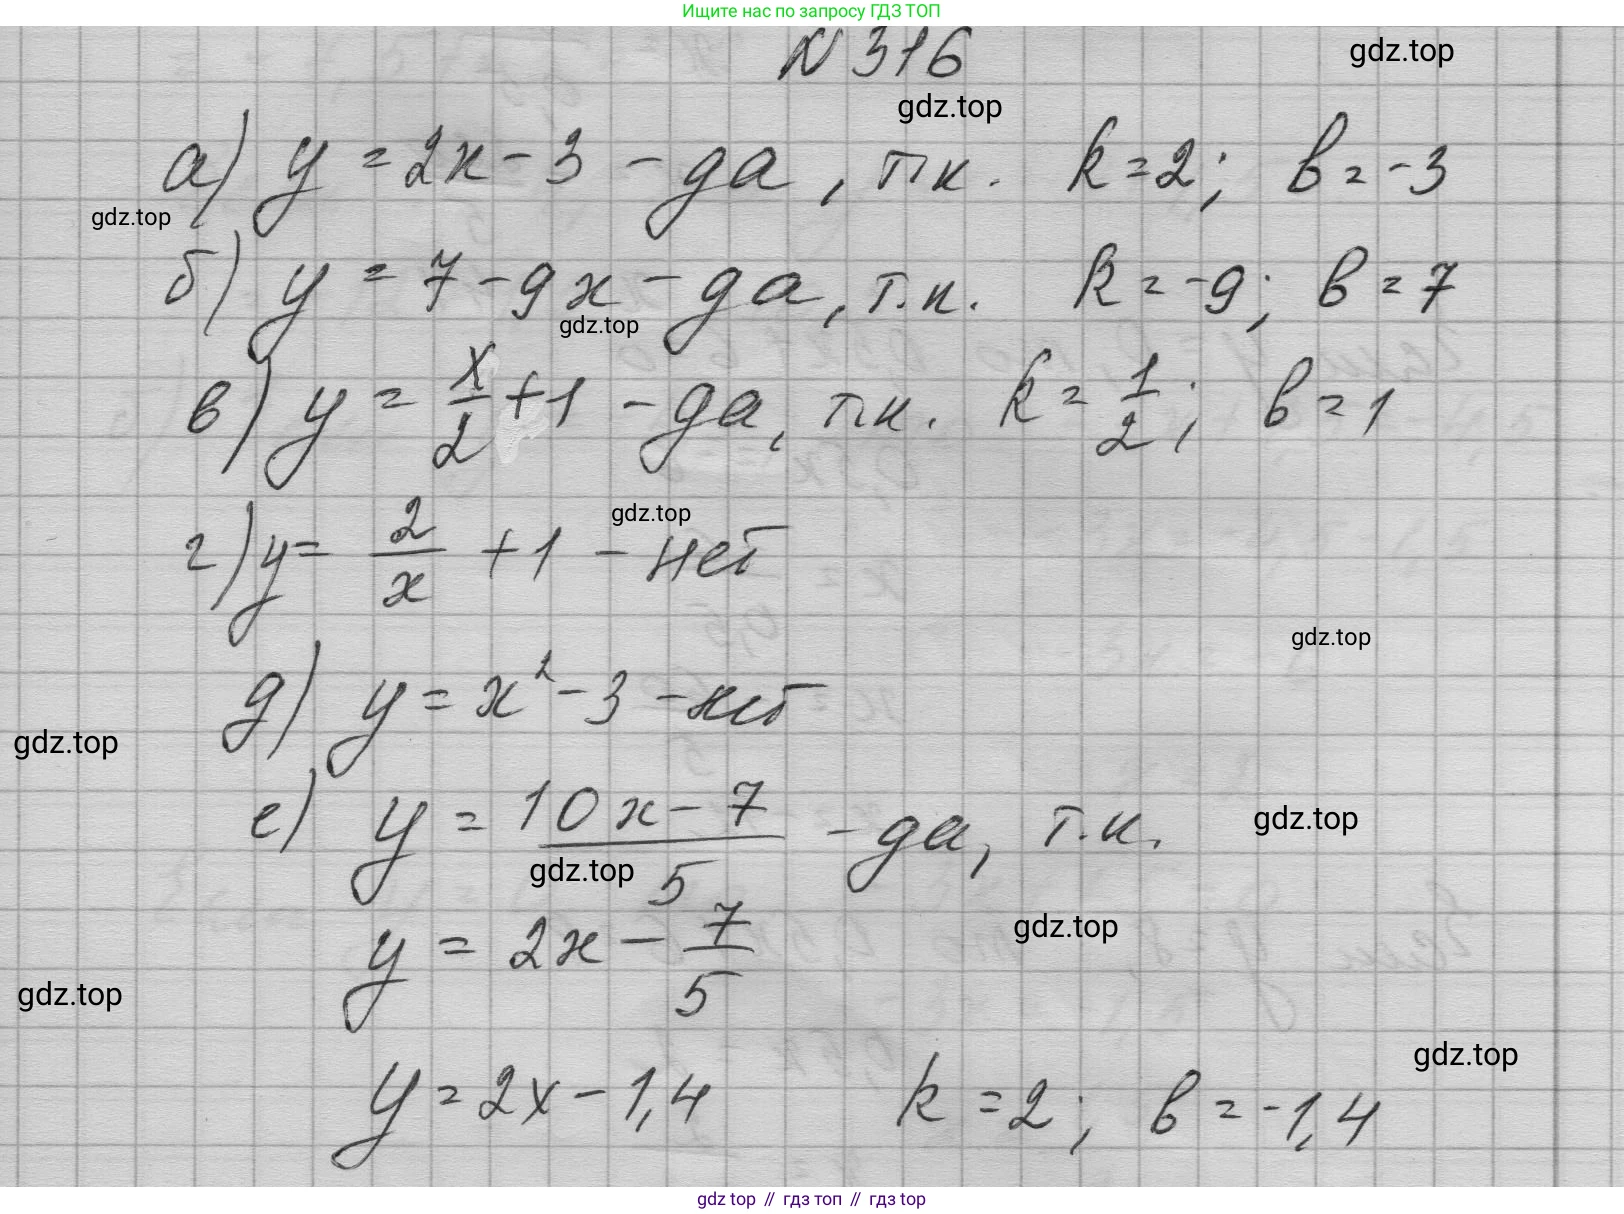 Ищите нас по запросу ГДЗ ТОП
N 316
gdz.top
gdz.top
а) y = 2x - 3 - да, т.к. k = 2; b = -3
gdz.top
б) y = 7 - 9x - да, т.к. k = -9; b = 7
gdz.top
в) y = x/2 + 1 - да, т.к. k = 1/2; b = 1
gdz.top
г) y = 2/x + 1 - нет
gdz.top
д) y = x² - 3 - нет
gdz.top
е) y = (10x - 7)/5 - да, т.к.
gdz.top
gdz.top
gdz.top
y = 2x - 7/5
gdz.top
gdz.top
y = 2x - 1,4 k = 2; b = -1,4
gdz top // гдз топ // гдз top